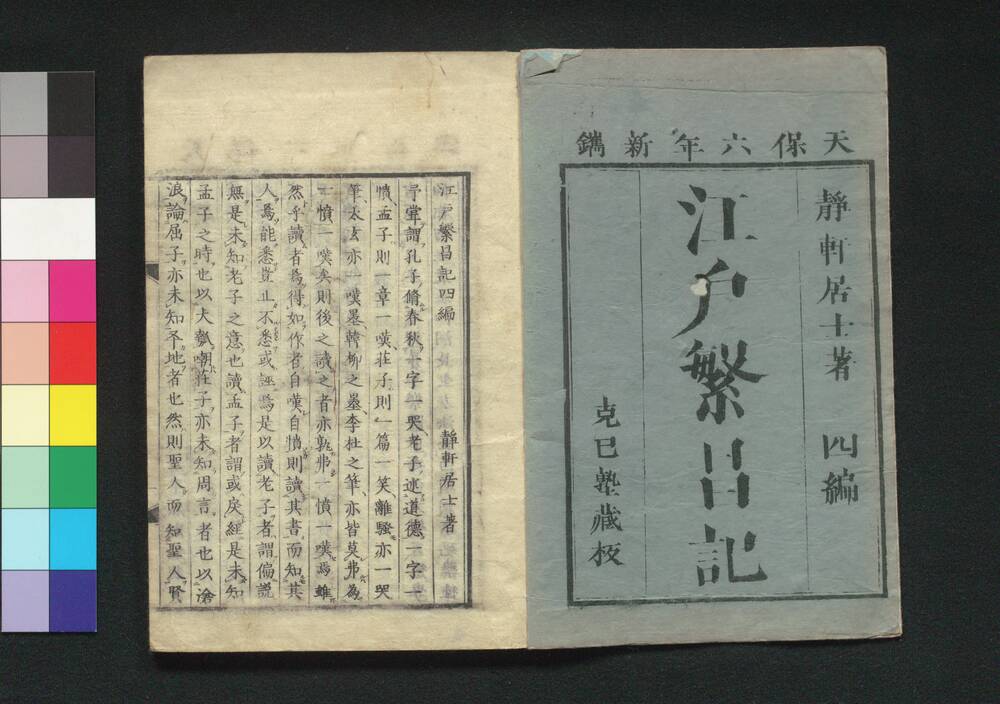 天保六年新鐫
靜軒居士著 四編
江戶繁昌記
克己塾藏板
江戶繁昌記四編
靜軒居士著
予嘗謂孔子脩春秋一字一哭老子述道德一字一
憤孟子則一章一嘆莊子則一篇一笑離騷亦一哭
筆太玄亦一嘆墨韓柳之墨李杜之筆亦皆莫弗為
一憤一嘆矣則後之讀之者亦孰弗一憤一嘆焉雖
然乎讀者為得如作者自嘆自憤則讀其書而知其
人為能悉豈止不悉或誣焉是以讀老子者謂偏說
無是未知老子之意也讀孟子者謂或戾經是未知
孟子之時也以大瓠嘲莊子亦未知周言者也以滄
浪論屈子亦未知平地者也然則聖人而知聖人賢